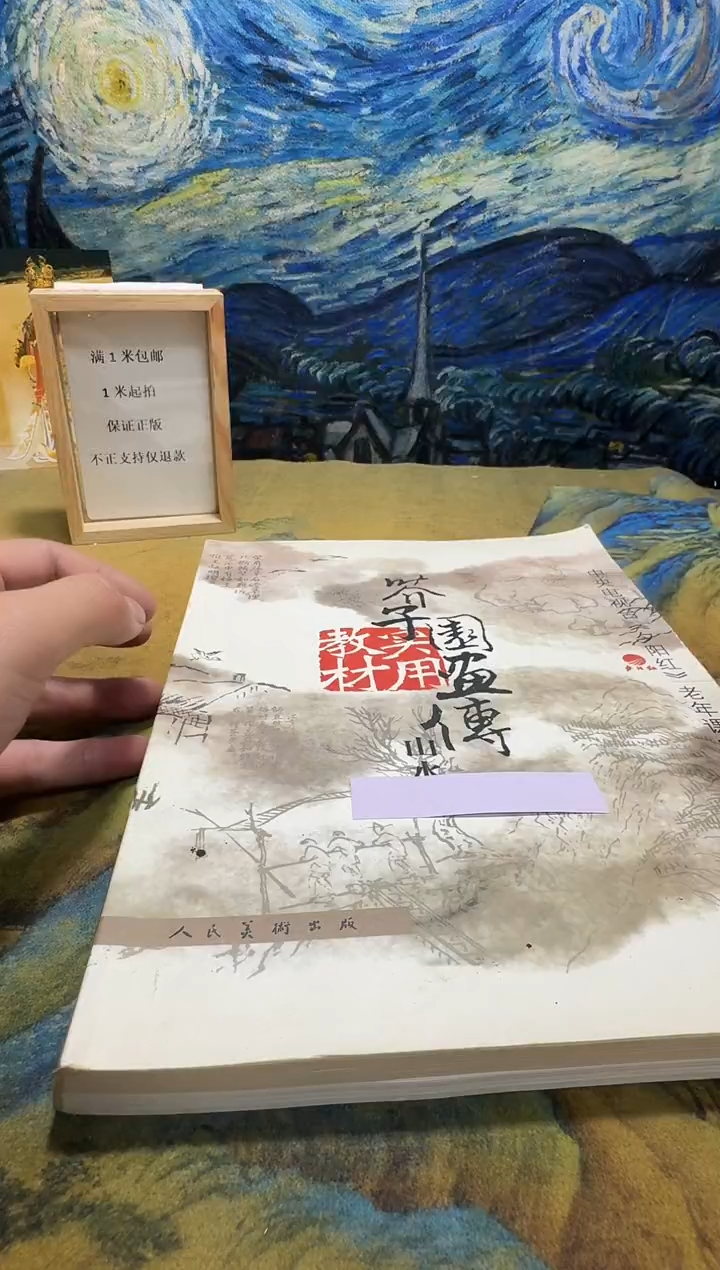 满1米包邮
1米起拍
保证正版
不正支持仅退款
芥子園畫傳
实用
教材
山水
中央电视台《夕阳红》老年课
夕阳红
人民美術出版